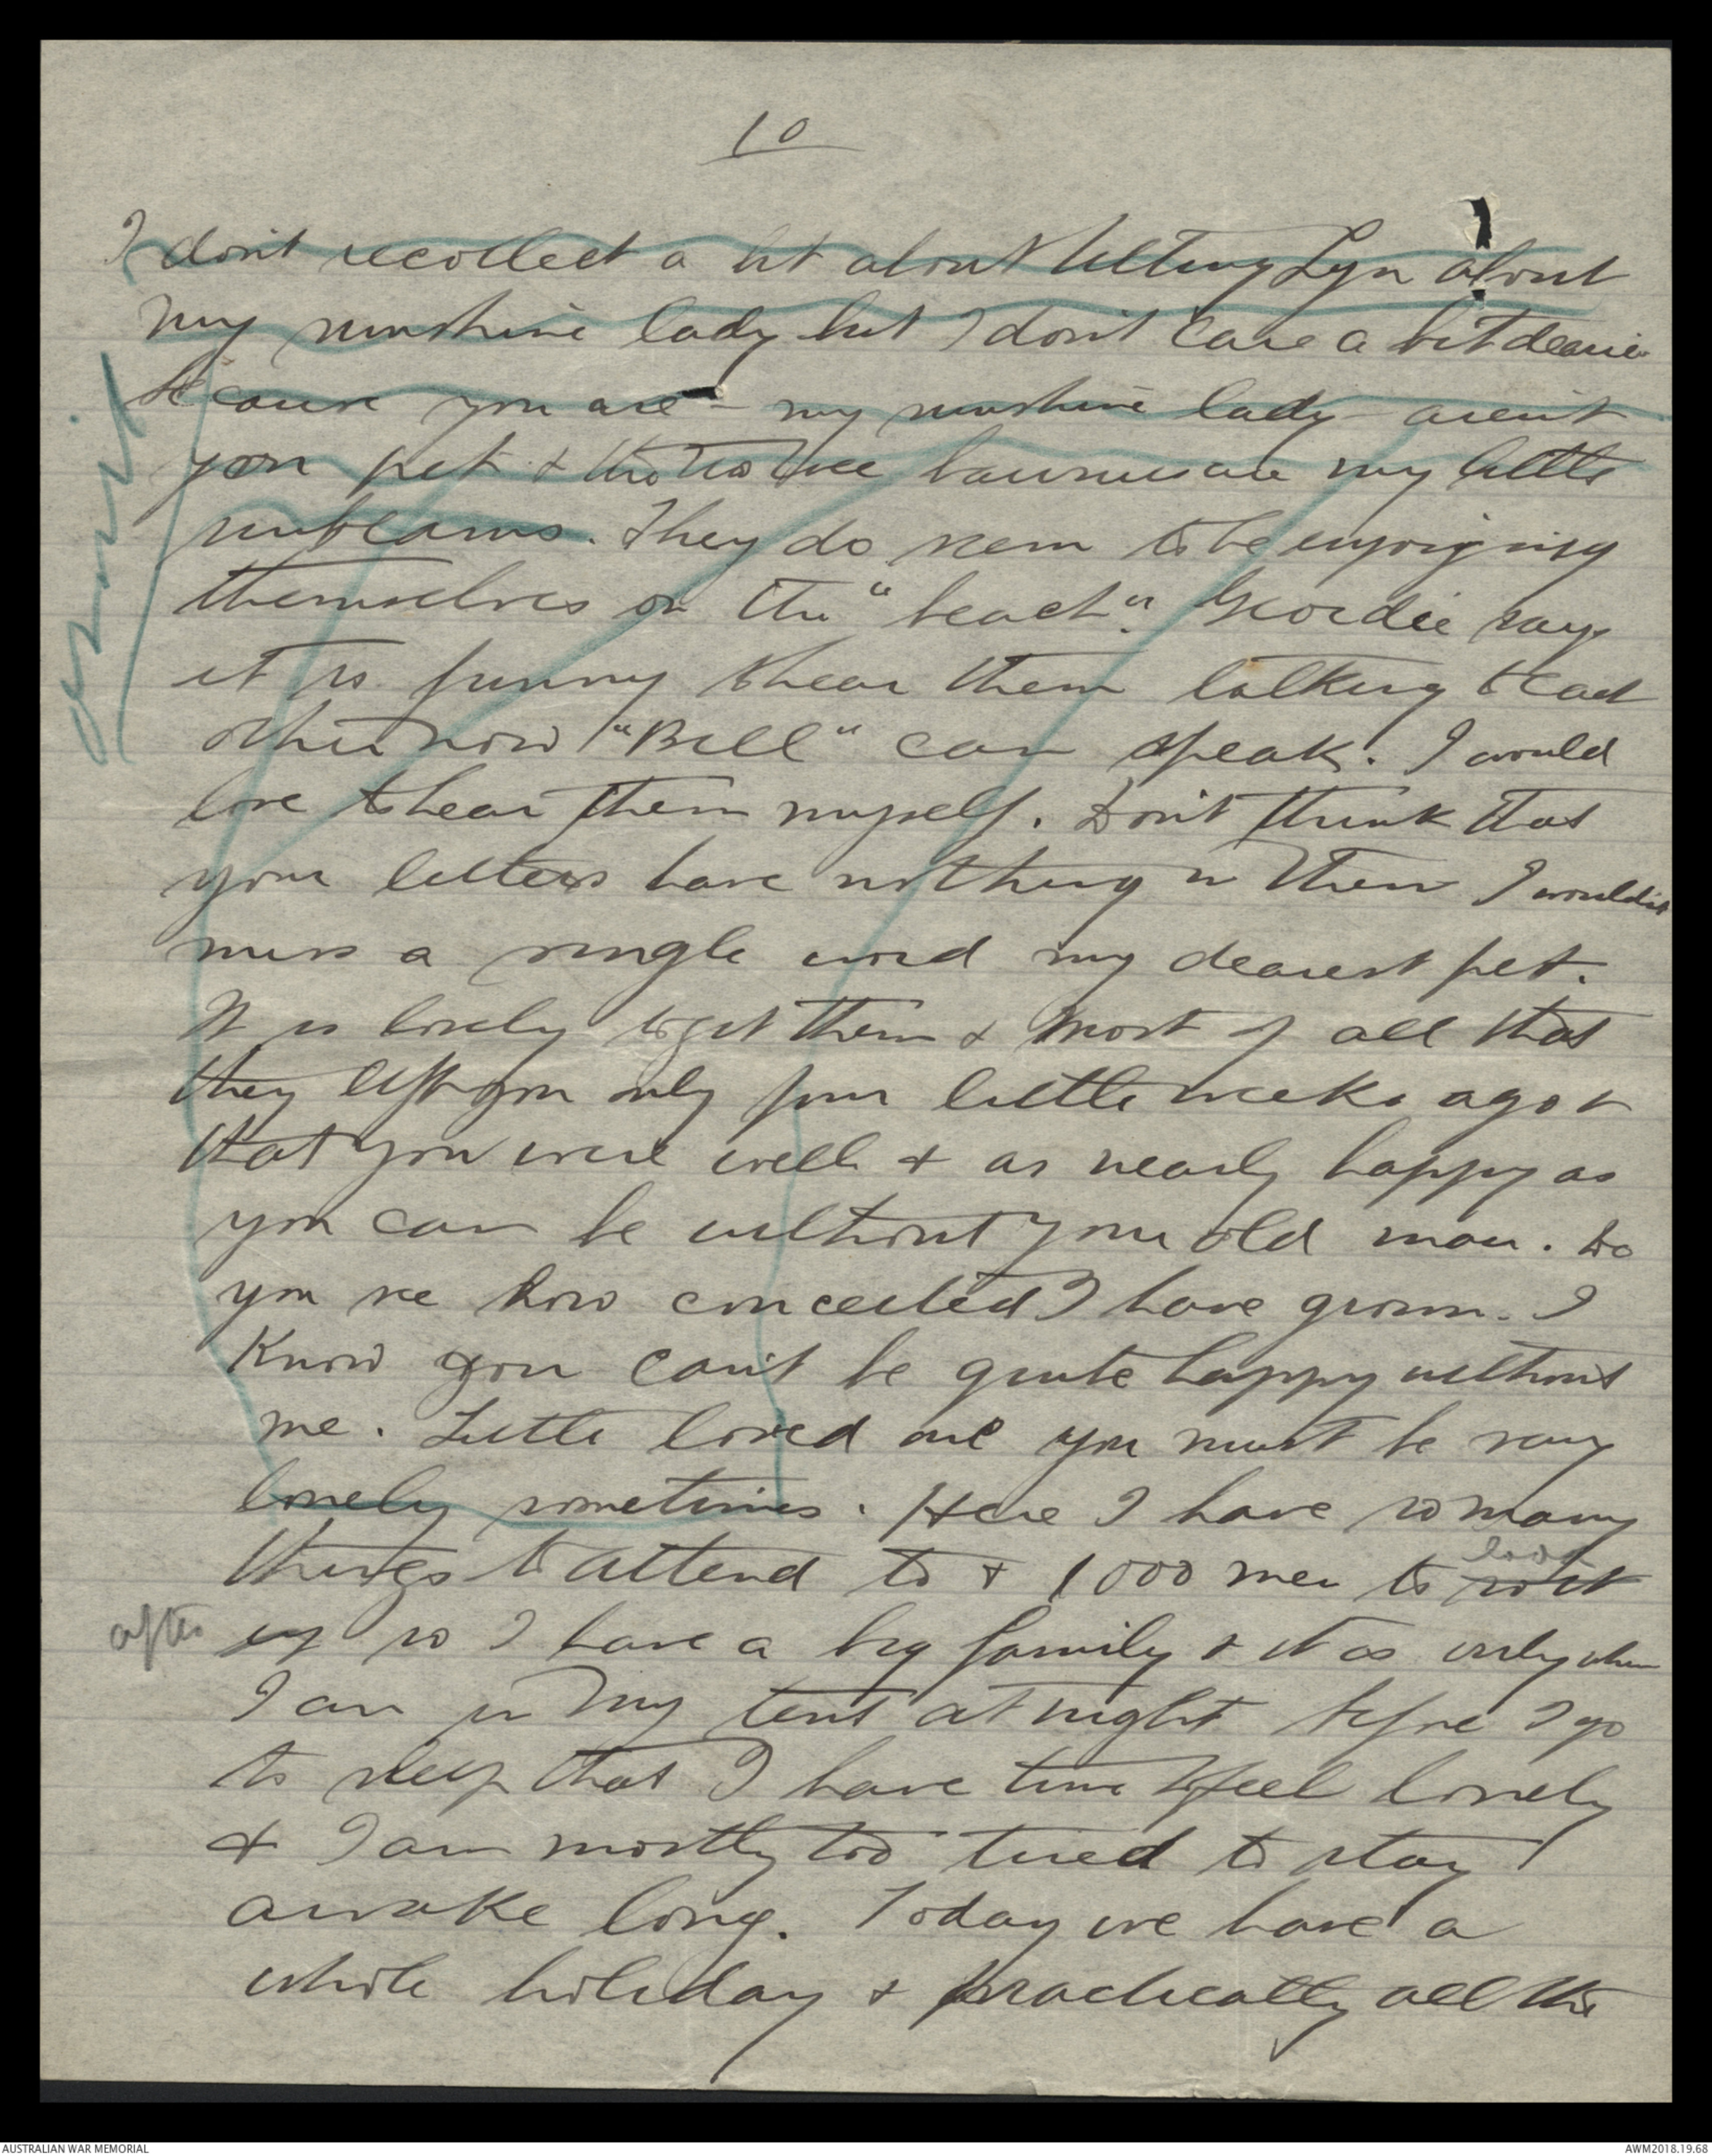 10
I don't recollect a bit about telling Lyn about
my sunshine lady but I don't care a bit dearie
because you are - my sunshine lady - aren't
you pet & the two wee bairnies are my little
sunbeams. They do seem to be enjoying
themselves on the "beach". Geordie says
it is funny to hear them talking to each
other now "Bill" can speak. I would
love to hear them myself. Don't think that
your letters have nothing in them I wouldn't
miss a single word my dearest pet.
It is lovely to get them & most of all that
they left you only four little weeks ago &
that you were well & as nearly happy as
you can be without your old man. Do
you see how conceited I have grown. I
know you can't be quite happy without
me. Little loved one you must be very
lonely sometimes. Here I have so many
things to attend to & 1000 men to look
after so I have a big family & it is only when
I am in my tent at night before I go
to sleep that I have time to feel lonely
& I am mostly too tired to stay
awake long. Today we have a
whole holiday & practically all the
omit
AUSTRALIAN WAR MEMORIAL
AWM2018.19.68